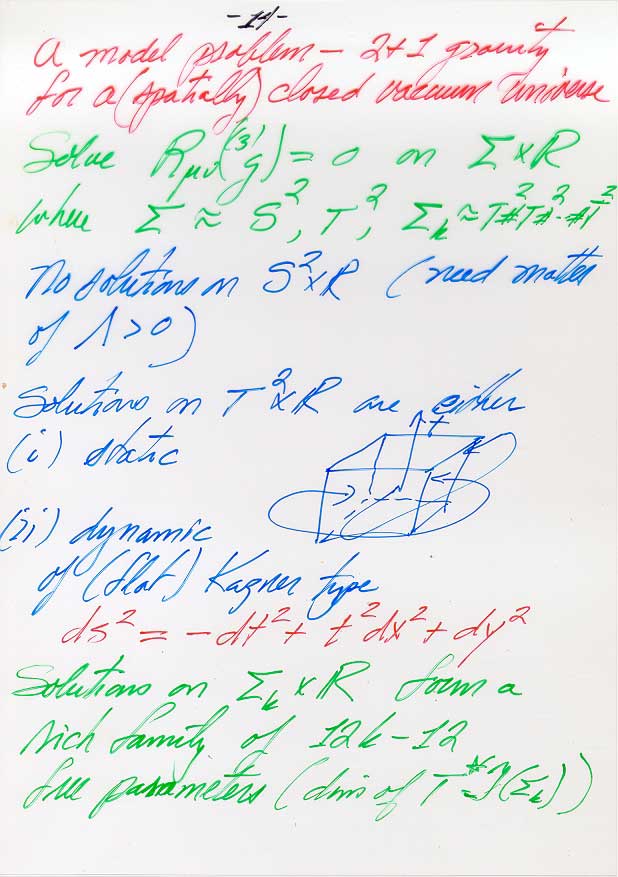 -14-
A model problem - 2+1 gravity
for a (spatially) closed vacuum universe
Solve Rμν(⁽³⁾g) = 0 on Σ×R
where Σ ≈ S², T², Σₖ ≈ T²#T²#--#T²
No solutions on S²×R (need matter
of Λ>0)
Solutions on T²×R are either
(i) static
t
(ii) dynamic
of (flat) Kasner type
ds² = -dt² + t²dx² + dy²
Solutions on Σₖ×R form a
rich family of 12k-12
free parameters (dim of T*𝒯(Σₖ))